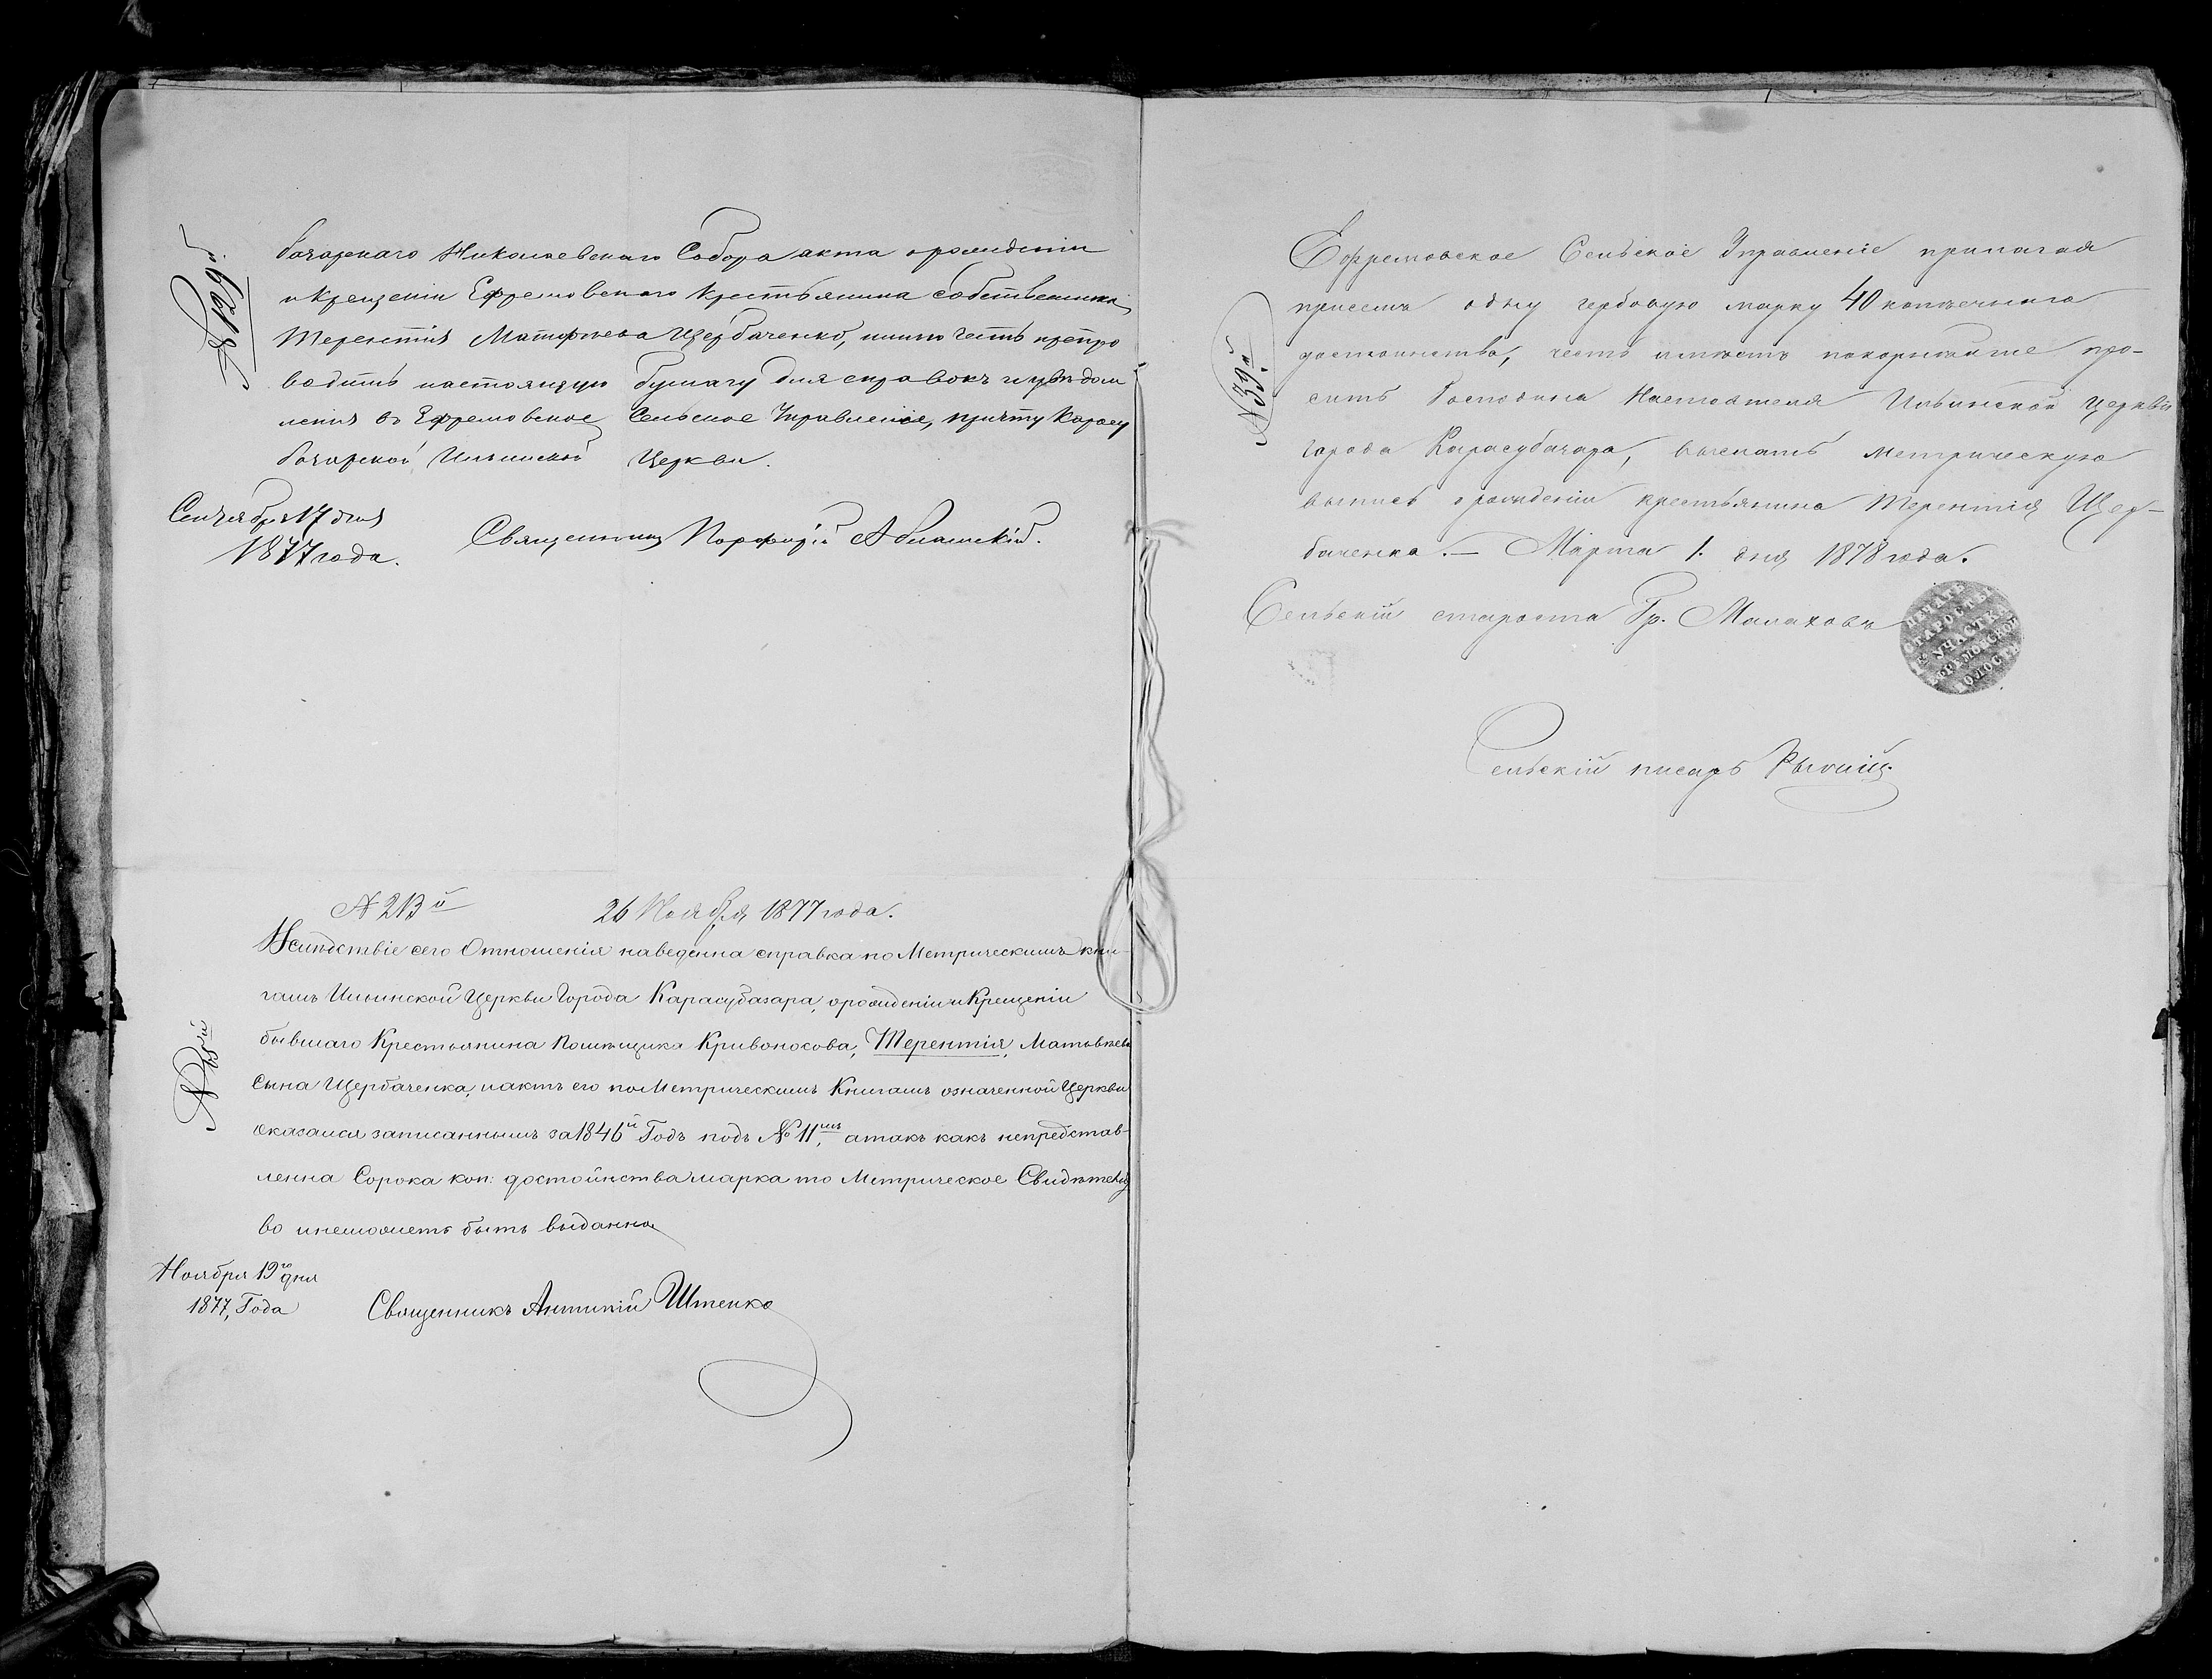 № 129й
базарскаго Николаевскаго Собора акта о рожденіи
и крещеніи Ефремовскаго крестьянина собственника
Терентія Матфѣева Щербаченко, имѣю честь препро
водить настоящую бумагу для справокъ и увѣдом
ленія въ Ефремовское Сельское Управленіе, причту Карасу
базарской Ильинской Церкви.
Сентября 17 дня
1877 года.
Священникъ Порфирій
№ 213й
26 Ноября 1877 года.
Всиѣдствіе сего Отношенія наведенна справка по Метрическимъ кни-
гамъ Ильинской Церкви Города Карасубазара, о рожденіи и Крещеніи
бывшаго Крестьянина Помѣщика Кривоносова, Терентія, Матвѣева
сына Щербаченка, и актъ его по Метрическимъ Книгамъ означенной Церкви
оказался записаннымъ за 1846й Годъ подъ № 11мъ, а такъ какъ непредстав-
ленна Сорока коп: достоинства марка то Метрическое Свидѣтель
во и неможетъ быть выданно
Ноября 19го дня
1877, Года
Священникъ Антипій Штенко
Ефремовское Сельское Управленіе прилагая
присемъ одну гербовую марку 40 копѣечнаго
достоинства, честь имѣетъ покорнѣйше про-
сить Господина Настоятеля Ильинской церкви
города Карасубазара, выслать метрическую
выпись о рожденіи крестьянина Терентія Щер-
баченка. — Марта 1. дня 1878 года.
Сельскій староста Гр. Малаховъ
ПЕЧАТЬ
СТАРОСТЫ
УЧАСТКА
ЕФРЕМОВСКОЙ
ВОЛОСТИ
Сельскій писарь